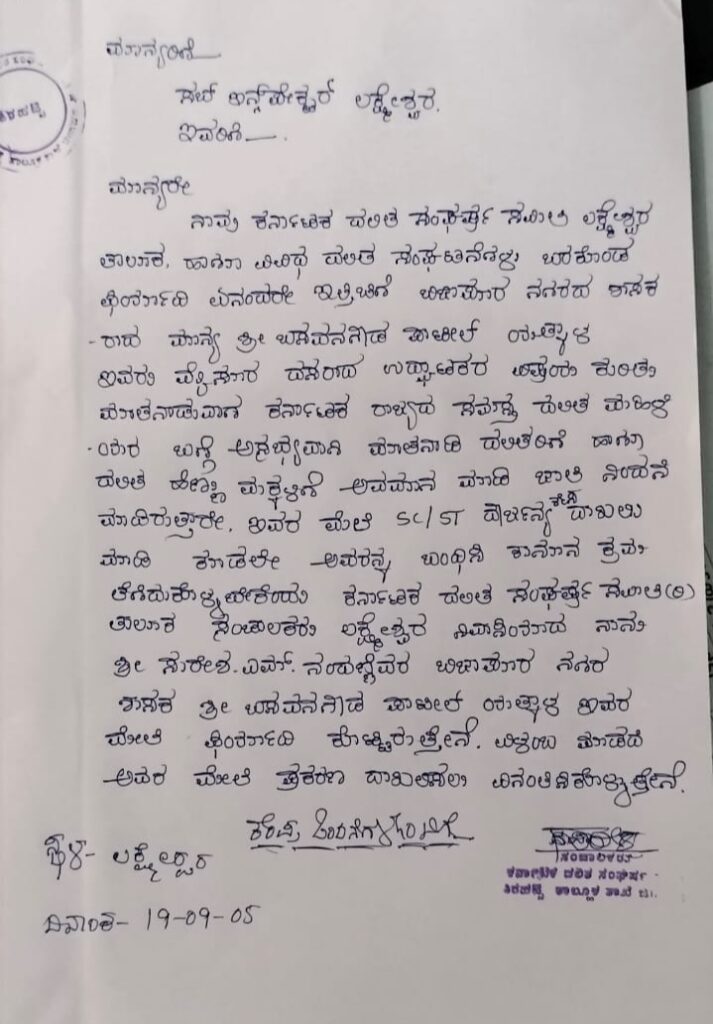 ಮಾನ್ಯರಿಗೆ
ಸಬ್ ಇನ್ಸ್‌ಪೇಕ್ಟರ್ ಲಕ್ಷ್ಮೇಶ್ವರ.
ಇವರಿಗೆ.
ಮಾನ್ಯರೇ
ನಾವು ಕರ್ನಾಟಕ ದಲಿತ ಸಂಘರ್ಷ ಸಮಿತಿ ಲಕ್ಷ್ಮೇಶ್ವರ
ತಾಲೂಕ. ಹಾಗೂ ವಿವಿಧ ದಲಿತ ಸಂಘಟನೆಗಳು ಬರಕೊಂಡ
ಫಿರ್ಯಾದಿ ಏನಂದರೇ ಇತ್ತಿಚಿಗೆ ಬಿಜಾಪೂರ ನಗರದ ಶಾಸಕ
-ರಾದ ಮಾನ್ಯ ಶ್ರೀ ಬಸವನಗೌಡ ಪಾಟೀಲ್ ಯತ್ನಾಳ
ಇವರು ಮೈಸೂರ ದಸರಾದ ಉದ್ಘಾಟಕರ ವಿಷಯ ಕುರಿತು
ಮಾತನಾಡುವಾಗ ಕರ್ನಾಟಕ ರಾಜ್ಯದ ಸಮಸ್ತ ದಲಿತ ಮಹಿಳೆ
-ಯರ ಬಗ್ಗೆ ಅಸಭ್ಯವಾಗಿ ಮಾತನಾಡಿ ದಲಿತರಿಗೆ ಹಾಗೂ
ದಲಿತ ಹೆಣ್ಣು ಮಕ್ಕಳಿಗೆ ಅವಮಾನ ಮಾಡಿ ಜಾತಿ ನಿಂದನೆ
ಮಾಡಿರುತ್ತಾರೇ. ಇವರ ಮೇಲೆ SC/ST ದೌರ್ಜನ್ಯ ದಾಖಲು
ಮಾಡಿ ಕೂಡಲೇ ಅವರನ್ನು ಬಂಧಿಸಿ ಕಾನೂನ ಕ್ರಮ
ತೆಗೆದುಕೊಳ್ಳಬೇಕೆಂದು ಕರ್ನಾಟಕ ದಲಿತ ಸಂಘರ್ಷ ಸಮಿತಿ(ರಿ)
ತಾಲೂಕ ಸಂಚಾಲಕರು ಲಕ್ಷ್ಮೇಶ್ವರ ನಿವಾಸಿಯಾದ ನಾನು
ಶ್ರೀ ಸುರೇಶ. ಎಮ್. ಬಿಜಾಪೂರ ನಗರ
ಶಾಸಕ ಶ್ರೀ ಬಸವನಗೌಡ ಪಾಟೀಲ್ ಯತ್ನಾಳ ಇವರ
ಮೇಲೆ ಫಿರ್ಯಾದಿ ಕೊಟ್ಟಿರುತ್ತೇನೆ. ವಿಳಂಬ ಮಾಡದೆ
ಅವರ ಮೇಲೆ ಪ್ರಕರಣ ದಾಖಲಿಸಲು ವಿನಂತಿಸಿಕೊಳ್ಳುತ್ತೇನೆ.
ಸ್ಥಳ- ಲಕ್ಷ್ಮೇಶ್ವರ
ಸಂಚಾಲಕರು
ಕರ್ನಾಟಕ ದಲಿತ ಸಂಘರ್ಷ
ದಿನಾಂಕ- 19-09-05